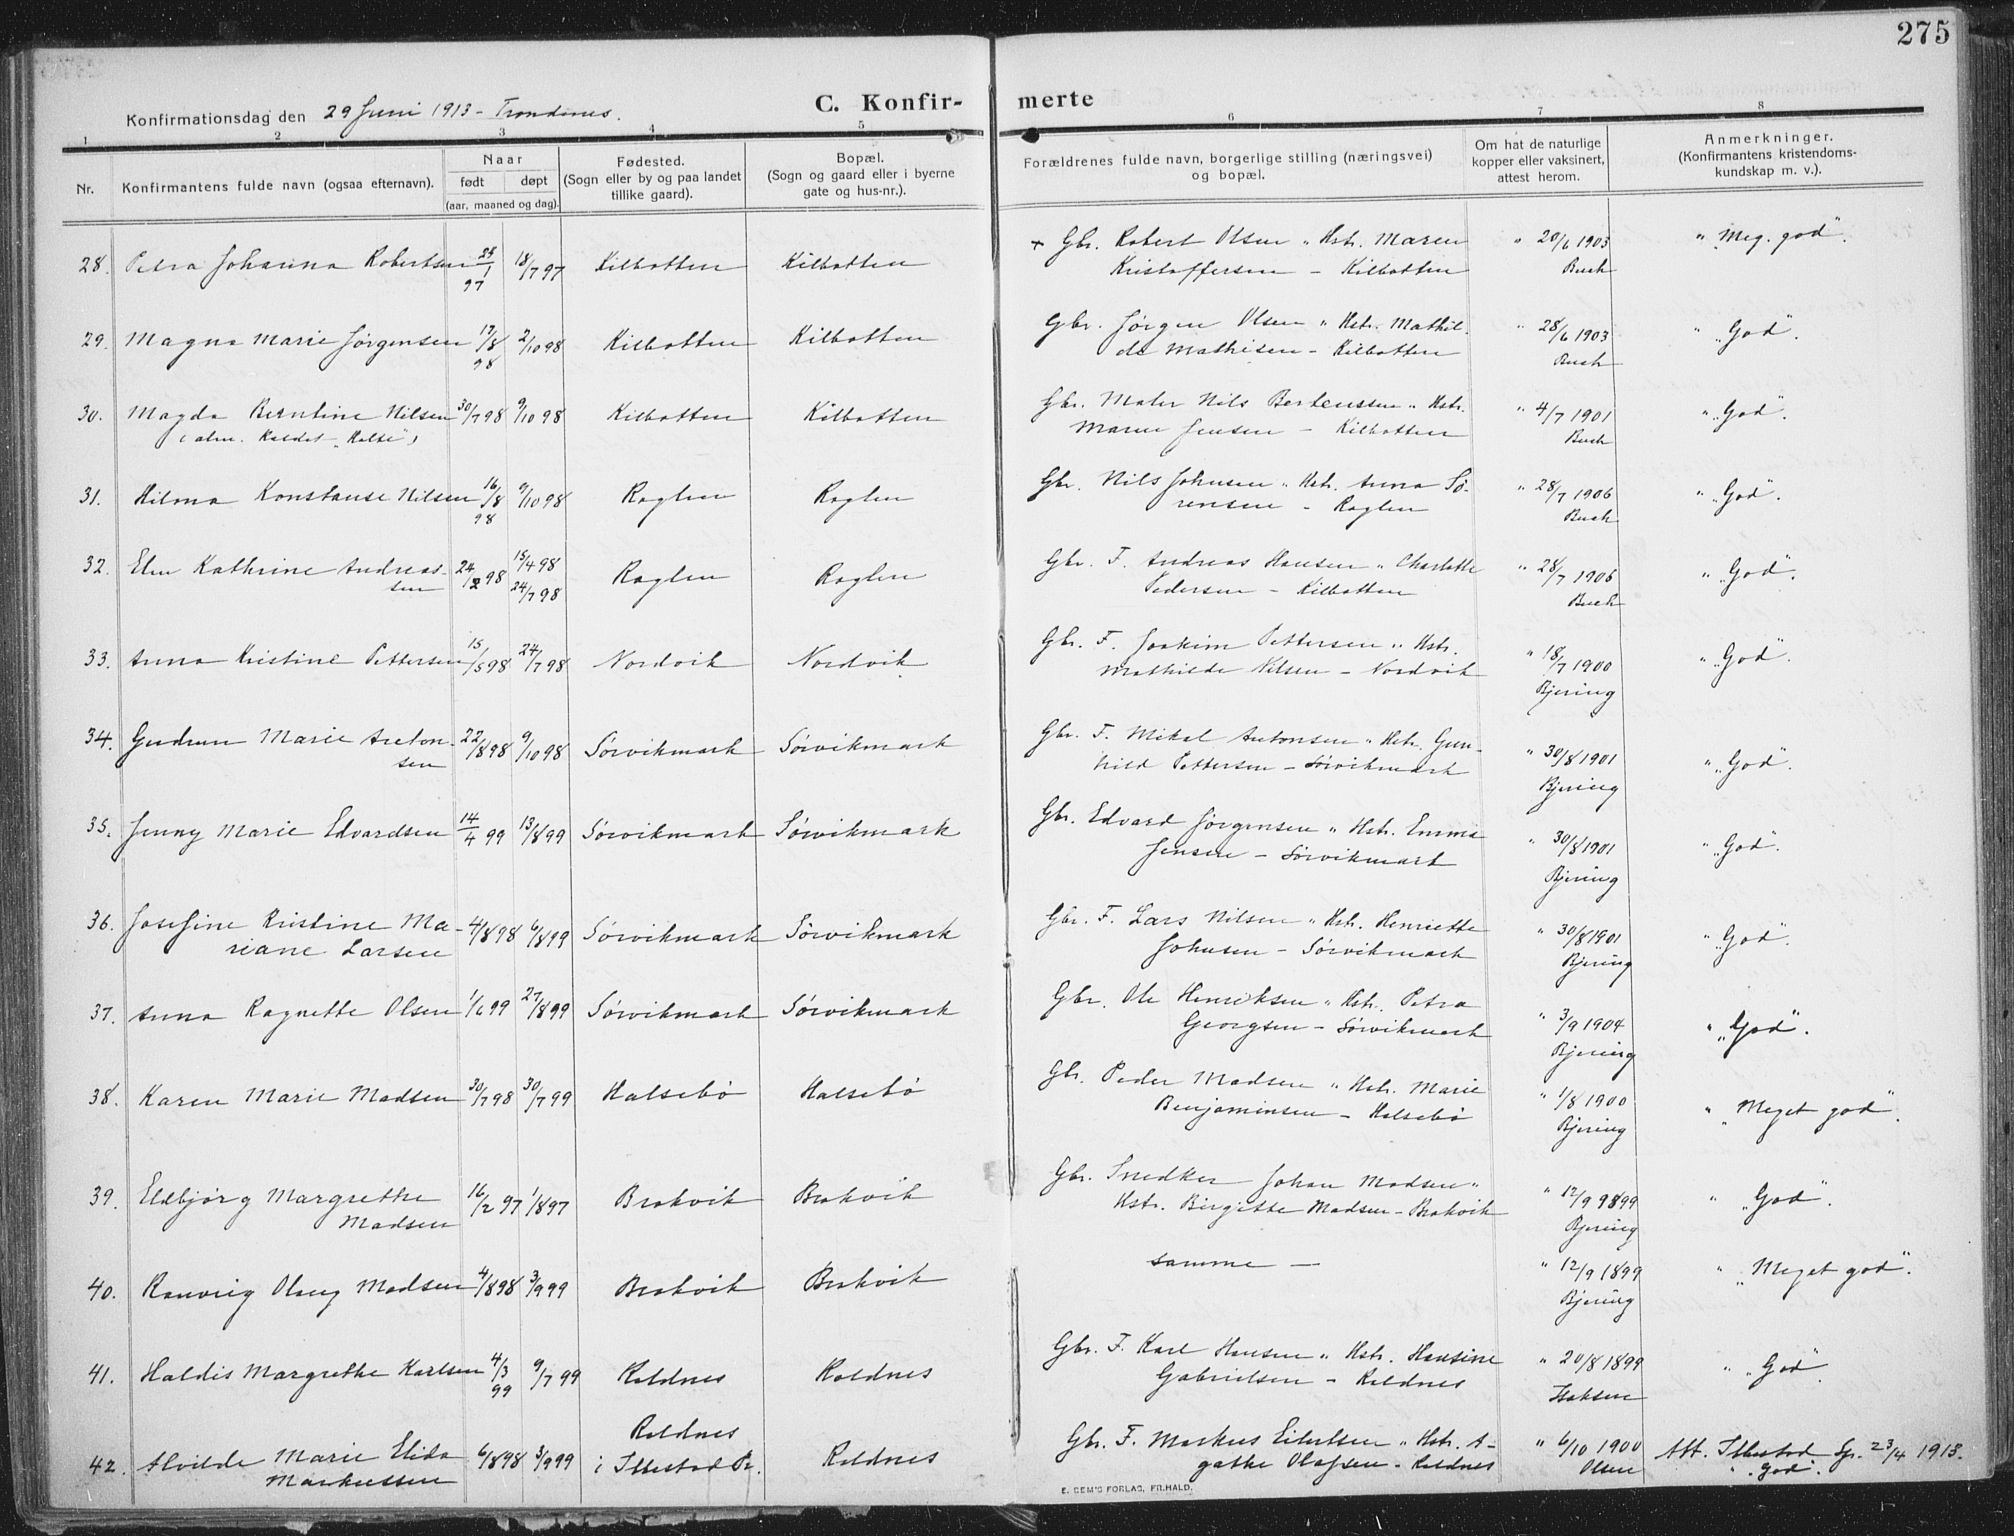 275
Konfirmationsdag den 29 Juni 1913 - Trondenes.
C. Konfir- merte
1 2 3 4 5 6 7 8
Nr. Konfirmantens fulde navn (ogsaa efternavn). Naar født døpt (aar, maaned og dag). Fødested. (Sogn eller by og paa landet tillike gaard). Bopæl. (Sogn og gaard eller i byerne gate og hus-nr.). Forældrenes fulde navn, borgerlige stilling (næringsvei) og bopæl. Om hat de naturlige kopper eller vaksinert, attest herom. Anmerkninger. (Konfirmantens kristendoms- kundskap m. v.).
28. Petra Johanna Robertsen 1 97 18/7 97 Kilbotten Kilbotten + Gbr. Robert Olsen " Hstr. Maren " 20/6 1903 " "Meg. god".
Kristoffersen - Kilbotten Buch
29. Magna Marie Jørgensen 17/8 98 2/10 98 Kilbotten Kilbotten Gbr. Jørgen Olsen " Hstr. Mathil- " 28/6 1903 " "God".
de Mathisen - Kilbotten Buch
30. Magda Berntine Nilsen 30/7 98 9/10 98 Kilbotten Kilbotten Gbr. Maler Nils Berteussen " Hstr. " 4/7 1901 " "God".
(alm. kaldet "Halse") Marie Jensen - Kilbotten Buch
31. Hilma Konstanse Nilsen 16/8 98 9/10 98 Roglen Roglen Gbr. Nils Johnsen " Hstr. Anna Sø- " 28/7 1906 " "God".
rensen - Roglen Buch
32. Elen Kathrine Andreas- 24/2 98 15/4 98 Roglen Roglen Gbr. F. Andreas Hansen " Charlotte " 28/7 1906 " "God".
sen 24/7 98 Pedersen - Kilbotten Buch
33. Anna Kristine Pettersen 15/5 98 24/7 98 Nordvik Nordvik Gbr. F. Joakim Pettersen " Hstr. " 18/7 1900 " "God".
Mathilde Nilsen - Nordvik Bjering
34. Gudrun Marie Anton- 22/8 98 9/10 98 Sørvikmark Sørvikmark Gbr. F. Mikal Antonsen " Hstr. Gun- " 30/8 1901 " "God".
sen hild Pettersen - Sørvikmark Bjering
35. Jenny Marie Edvardsen 14/4 99 13/8 99 Sørvikmark Sørvikmark Gbr. Edvard Jørgensen " Hstr. Emma " 30/8 1901 " "God".
Jensen - Sørvikmark Bjering
36. Josefine Kristine Ma- 4/8 98 6/8 99 Sørvikmark Sørvikmark Gbr. F. Lars Nilsen " Hstr. Henriette " 30/8 1901 " "God".
riane Larsen Johnsen - Sørvikmark Bjering
37. Anna Ragnette Olsen 1/6 99 27/8 99 Sørvikmark Sørvikmark Gbr. Ole Henriksen " Hstr. Petra " 3/9 1904 " "God".
Georgsen - Sørvikmark Bjering
38. Karen Marie Madsen 30/7 98 30/7 99 Halsebø Halsebø Gbr. Peder Madsen " Hstr. Marie " 1/8 1900 " "Meget god".
Benjaminsen - Halsebø Bjering
39. Eldbjørg Margrethe 16/2 97 1/8 97 Brokvik Brokvik Gbr. Snedker Johan Madsen " " 12/9 9899 " "God".
Madsen Hstr. Birgitte Madsen - Brokvik Bjering
40. Ranveig Olaug Madsen 4/8 98 3/9 99 Brokvik Brokvik samme - " 12/9 1899 " "Meget god".
Bjering
41. Haldis Margrethe Karlsen 4/3 99 9/7 99 Roldnes Roldnes Gbr. F. Karl Hansen " Hstr. Hansine " 20/8 1899 " "God".
Gabrielsen - Roldnes
42. Alvilde Marie Elida 6/8 98 3/9 99 Roldnes Roldnes Gbr. F. Markus Eilertsen " Hstr. A- " 6/10 1900 Att. Ibbestad Sp. 23/4 1913.
Markussen i Ibbestad Pr. gathe Olafsen - Roldnes Olsen "God".
E. SEM'S FORLAG, FR.HALD.